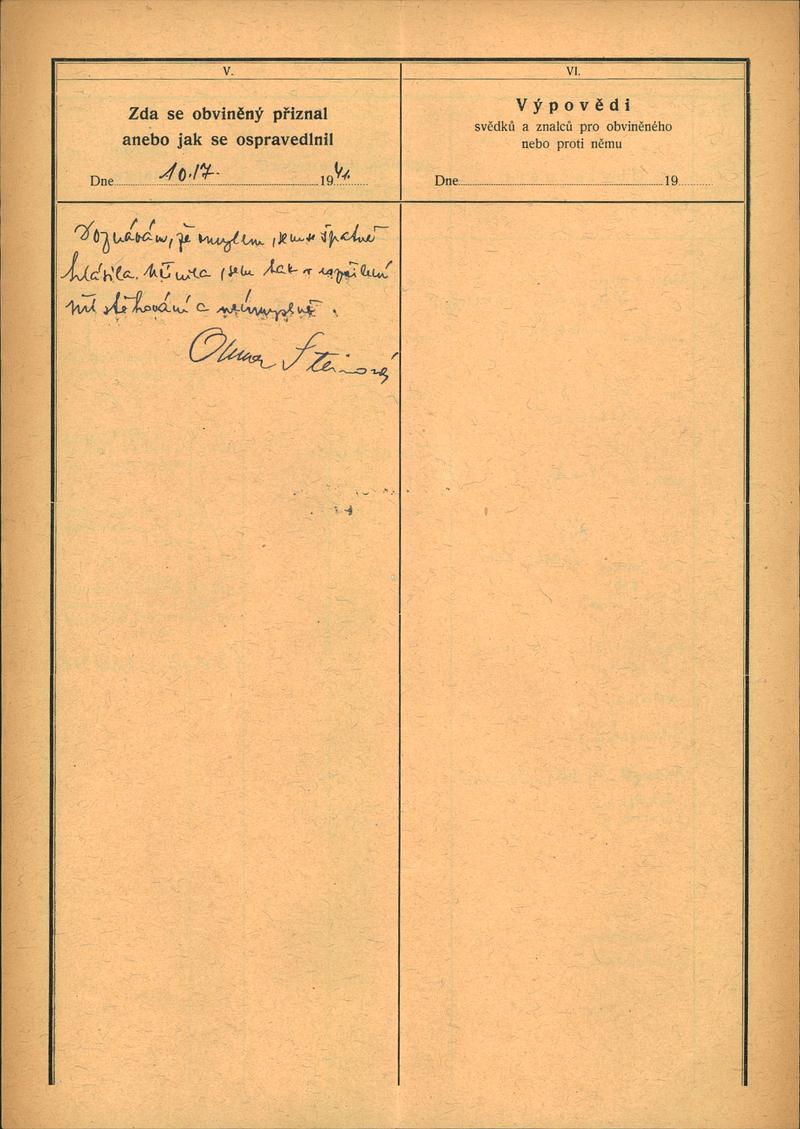 V.
Zda se obviněný přiznal
anebo jak se ospravedlnil
Dne 10./7. 1941.
Doznávám, že omylem jsem se špatně
hlásila. Učinila jsem tak v rozčilení
stěhování a neúmyslně.
Steinová
VI.
Výpovědi
svědků a znalců pro obviněného
nebo proti němu
Dne 19